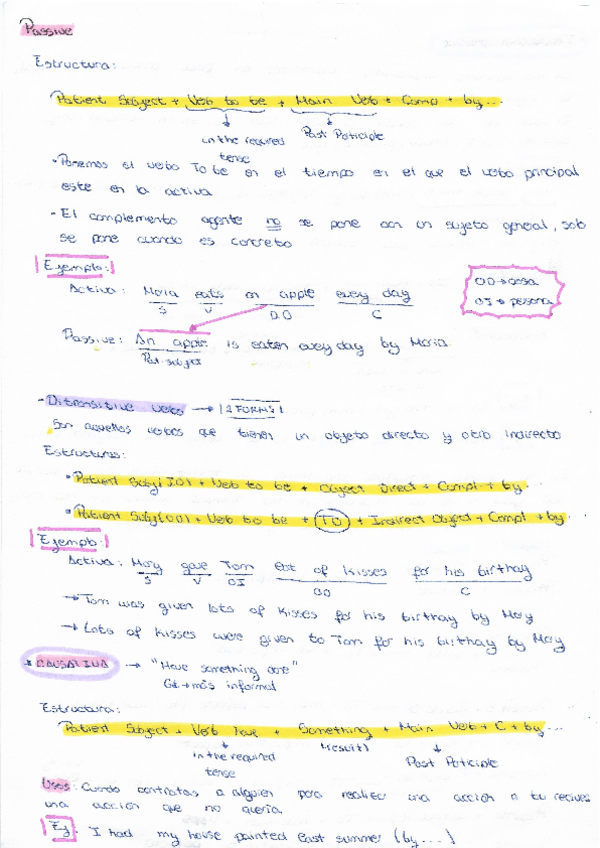 Passive
Estructura:
Patient Subject + Verb to be + Main Verb + Comp + by...
in the required tense
Past Participle
· Ponemos el verbo To be en el tiempo en el que el verbo principal
este en la activa
- El complemento agente no se pone con un sujeto general, solo
se pone cuando es concreto
Ejemplo:
Activa: Maria eats an apple every day
S V DO C
OD → cosa
OI → persona
Passive: An apple is eaten every day by Maria
Pat. subject
- Ditransitive verbs → 2 FORMS
Son aquellos verbos que tienen un objeto directo y otro indirecto
Estructuras:
· Patient Subj (OI) + Verb to be + Object Direct + Compl + by
· Patient Subj (OD) + Verb to be + TO + Indirect Object + Compl + by
Ejemplo:
Activa: Mary gave Tom lot of kisses for his birthay
S V OI OD C
→ Tom was given lots of kisses for his birthay by Mary
→ Lots of kisses were given to Tom for his birthay by Mary
* CAUSATIVA → "Have something done"
Get → más informal
Estructura:
Patient Subject + Verb have + Something + Main Verb + C + by...
in the required tense
(result)
Past Participle
Usos: Cuando contratas a alguien para realizar una acción o tu recives
una acción que no quería.
Ej. I had my house painted last summer (by...)